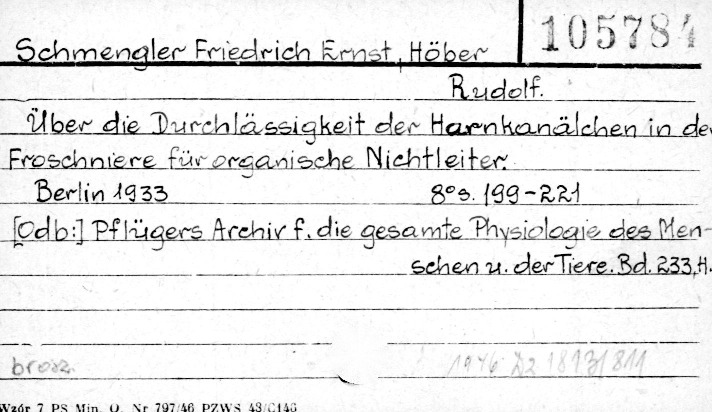 105784
Schmengler Friedrich Ernst, Höber
Rudolf.
Über die Durchlässigkeit der Harnkanälchen in der
Froschniere für organische Nichtleiter.
Berlin 1933 8° s. 199-221
[Odb:] Pflügers Archiv f. die gesamte Physiologie des Men-
schen u. der Tiere. Bd. 233, H.
brosz. 1946 D2 1813/811
Wzór 7 PS Min. O. Nr 797/46 PZWS 43/6146